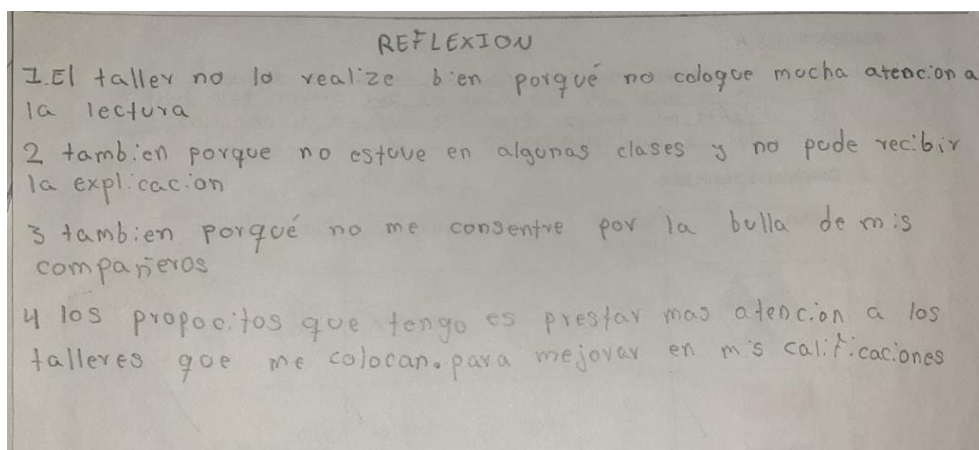 REFLEXION
1.El taller no lo realize bien porqué no cologue mucha atencion a
la lectura
2 tambien porque no estuve en algunas clases y no pude recibir
la explicacion
3 tambien porqué no me consentre por la bulla de mis
compañeros
4 los propocitos que tengo es prestar mas atencion a los
talleres que me colocan. para mejorar en mis calificaciones